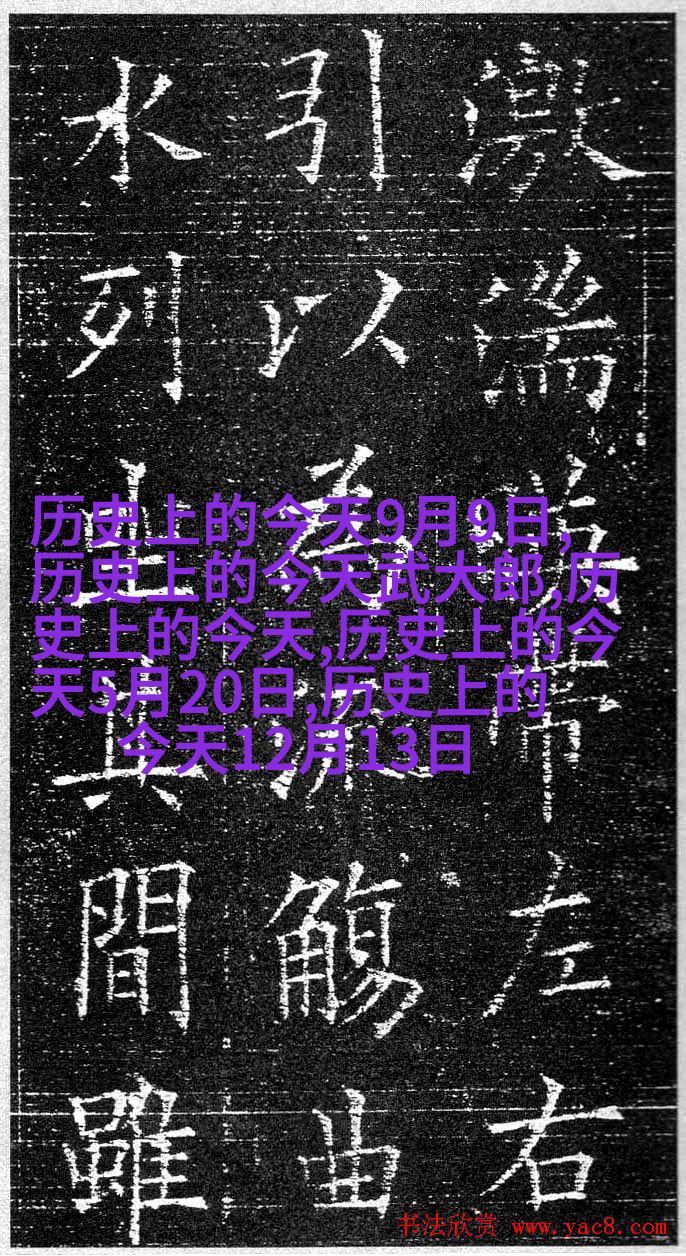 激湍帶左右
引以為流觴曲
水列坐其間雖
历史上的今天9月9日,
历史上的今天武大郎,历
史上的今天,历史上的今
天5月20日,历史上的
今天12月13日
书法欣赏 www.yac8.com